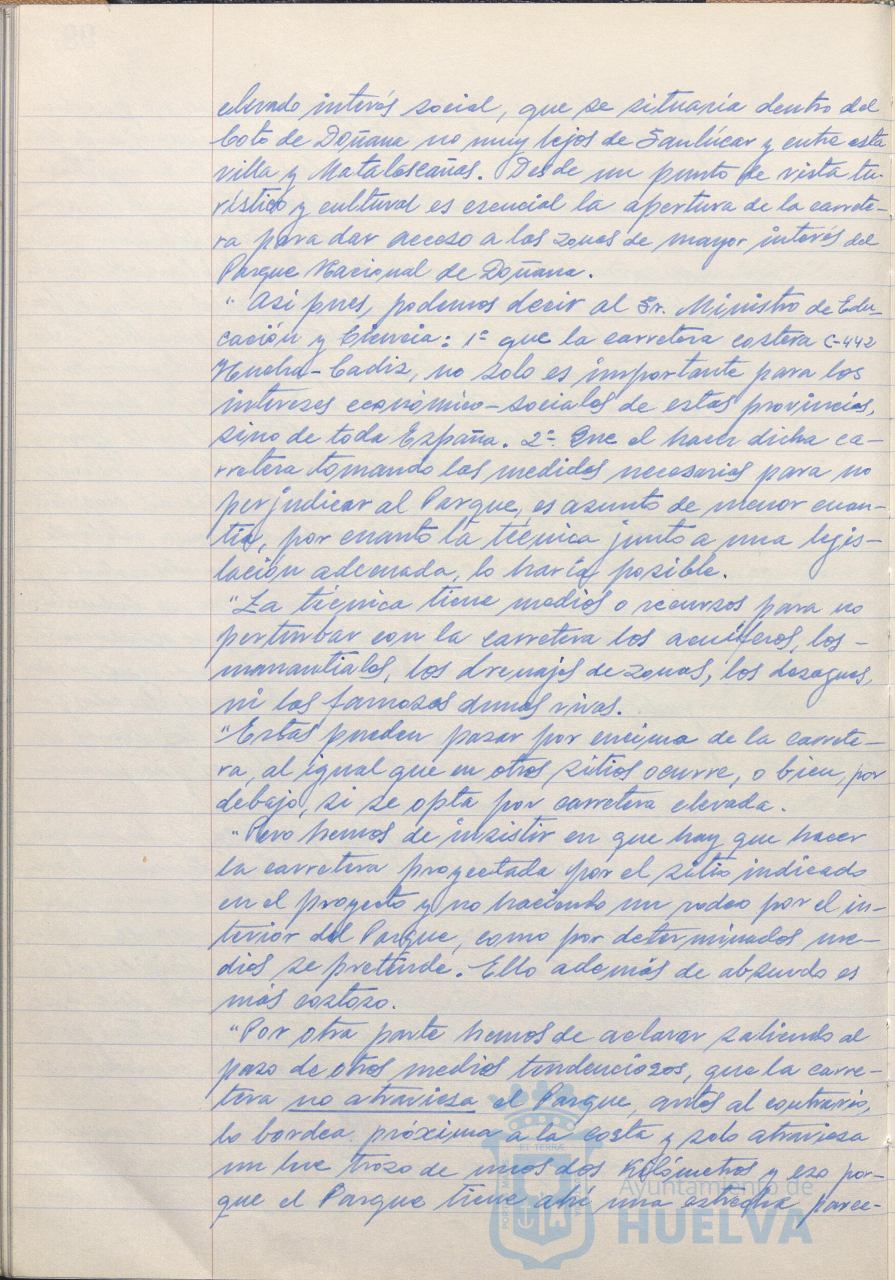 elevado interés social, que se situaría dentro del
Coto de Doñana no muy lejos de Sanlúcar y entre esta
villa y Matalascañas. Desde un punto de vista tu-
rístico y cultural es esencial la apertura de la carrete-
ra para dar acceso a las zonas de mayor interés del
Parque Nacional de Doñana.
"Así pues, podemos decir al Sr. Ministro de Edu-
cación y Ciencia: 1º que la carretera costera C-442
Huelva-Cadiz, no solo es importante para los
intereses económico-sociales de estas provincias,
sino de toda España. 2º Que el hacer dicha ca-
rretera tomando las medidas necesarias para no
perjudicar al Parque, es asunto de menor cuan-
tía, por cuanto la técnica junto a una legis-
lación adecuada, lo haría posible.
"La técnica tiene medios o recursos para no
perturbar con la carretera los acuíferos, los-
manantiales, los drenajes de zonas, los desagues,
ni las famosas dunas vivas.
"Estas pueden pasar por encima de la carrete-
ra, al igual que en otros sitios ocurre, o bien, por
debajo, si se opta por carretera elevada.
"Pero hemos de insistir en que hay que hacer
la carretera proyectada por el sitio indicado
en el proyecto y no haciendo un rodeo por el in-
terior del Parque, como por determinados me-
dios se pretende. Ello además de absurdo es
más costoso.
"Por otra parte hemos de aclarar saliendo al
paso de otros medios tendenciosos, que la carre-
tera no atraviesa el Parque, antes al contrario,
lo bordea próxima a la costa y solo atraviesa
un leve trozo de unos dos Kilómetros y eso por-
que el Parque tiene ahí una estrecha parce-
Ayuntamiento de
HUELVA